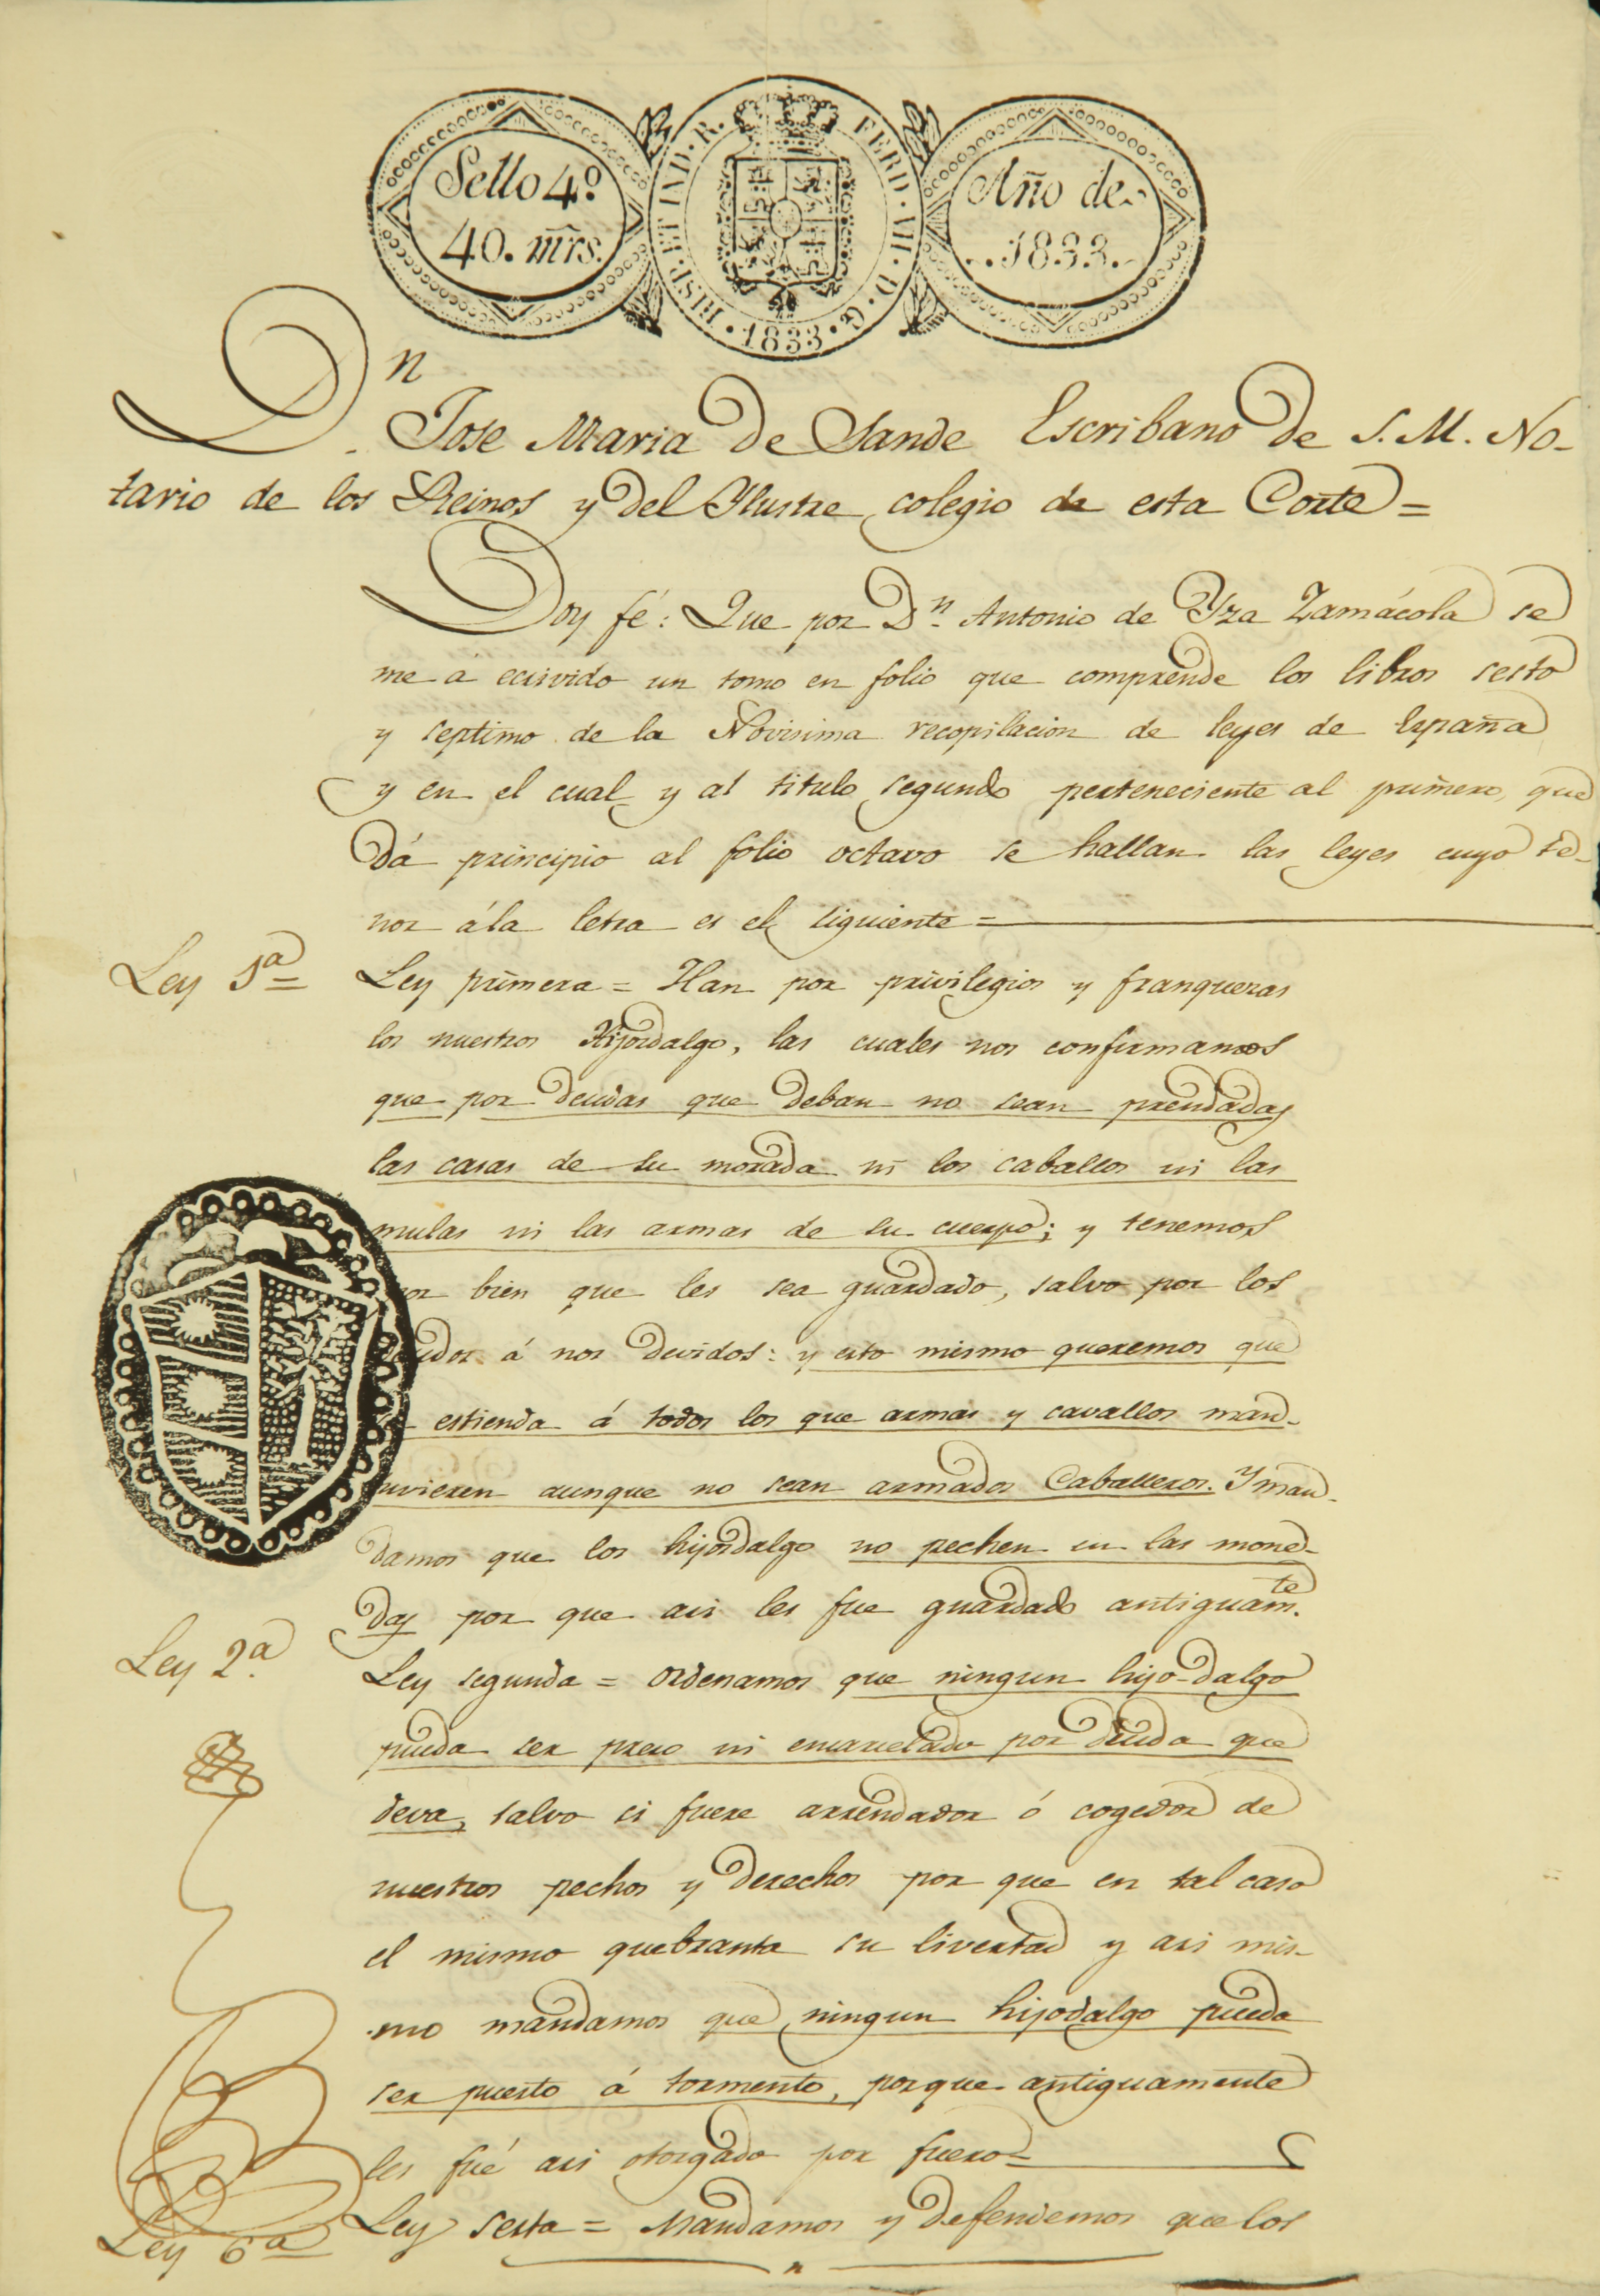 Sello 4º
40. mrs.
HISP. ET IND. R. FERD. VII. D. G. 1833.
Año de
..1833..
Dn. Jose Maria de Sande Escribano de S. M. No-
tario de los Reinos y del Ylustre colegio de esta Corte =
Doy fé: Que por Dn. Antonio de Yza Zamácola se
me á ecsivido un tomo en folio que comprende los libros sesto
y septimo de la Novisima recopilacion de leyes de España
y en el cual y al titulo segundo perteneciente al primero, que
dá principio al folio octavo se hallan las leyes cuyo te-
nor á la letra es el siguiente =
Ley 1ª =
Ley primera = Han por privilegios y franquezas
los nuestros Hijosdalgo, las cuales nos confirmamos
que por deudas que deban no sean prendadas
las casas de su morada ni los caballos ni las
mulas ni las armas de su cuerpo; y tenemos
por bien que les sea guardado, salvo por los
á nos devidos: y esto mismo queremos que
se estienda á todos los que armas y cavallos man-
tuvieren aunque no sean armados Caballeros. Y man-
damos que los hijosdalgo no pechen en las mone-
das por que asi les fue guardado antiguamte.
Ley 2ª
Ley segunda = Ordenamos que ningun hijo-dalgo
pueda ser preso ni encarcelado por deuda que
deva, salvo si fuere arrendador ó cogedor de
nuestros pechos y derechos por que en tal caso
el mismo quebranta su livertad y asi mis-
mo mandamos que ningun hijodalgo pueda
ser puesto á tormento, porque antiguamente
les fué asi otorgado por fuero =
Ley 6ª
Ley sesta = Mandamos y defendemos que los